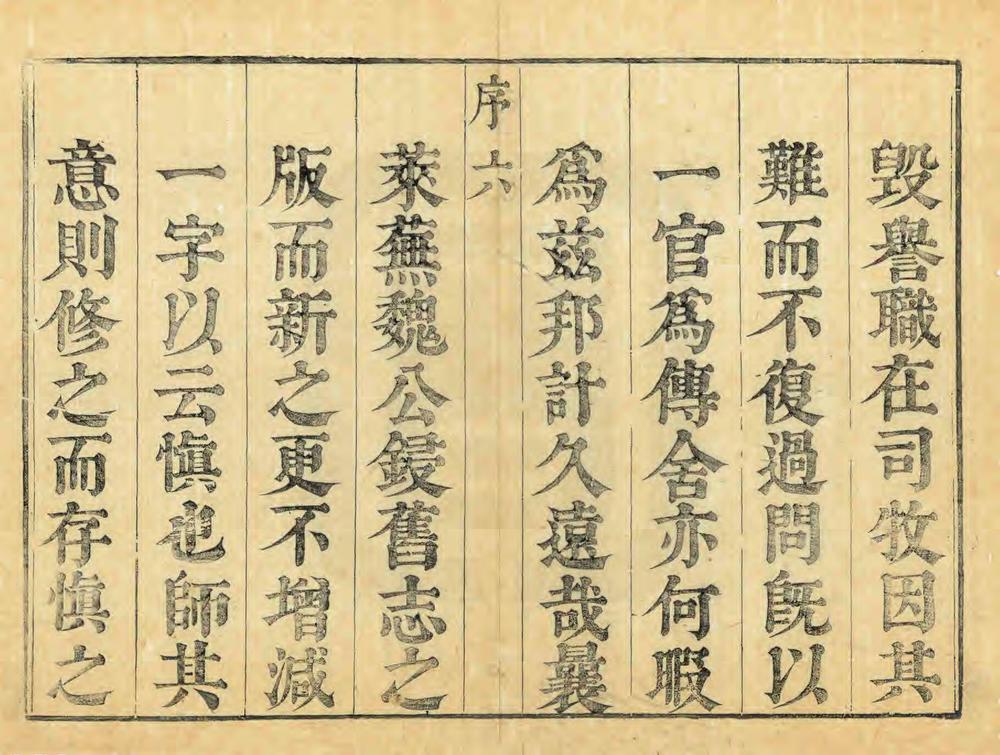 毀譽職在司牧因其
難而不復過問旣以
一官爲傳舍亦何暇
爲茲邦計久遠哉曩
序六
萊蕪魏公鋟舊志之
版而新之更不增減
一字以云慎也師其
意則修之而存慎之